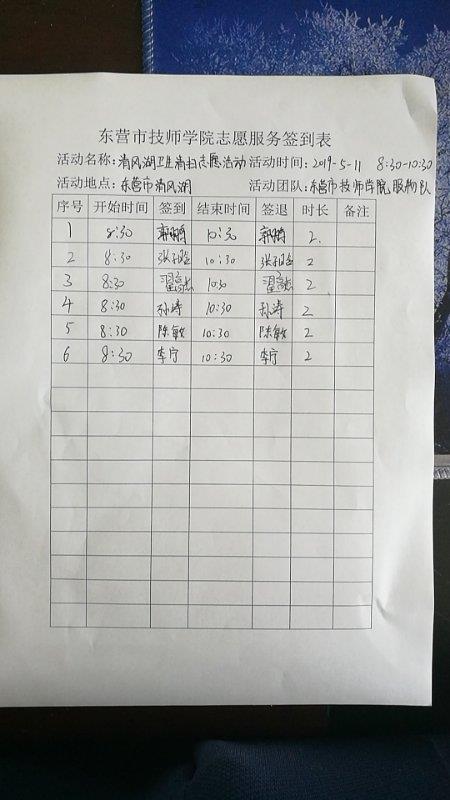 东营市技师学院志愿服务签到表
活动名称：清风湖卫生清扫志愿活动 活动时间：2019-5-11 8:30-10:30
活动地点：东营市清风湖 活动团队：东营市技师学院服务队
序号 开始时间 签到 结束时间 签退 时长 备注
1 8:30 郭鹏 10:30 郭鹏 2
2 8:30 10:30 2
3 8:30 10:30 2
4 8:30 孙涛 10:30 孙涛 2
5 8:30 陈敏 10:30 陈敏 2
6 8:30 李宁 10:30 李宁 2